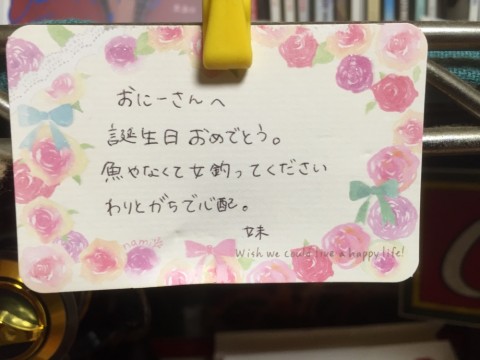 おにーさんへ
誕生日おめでとう。
魚やなくて女釣ってください
わりとがちで心配。
妹
Wish we could live a happy life!